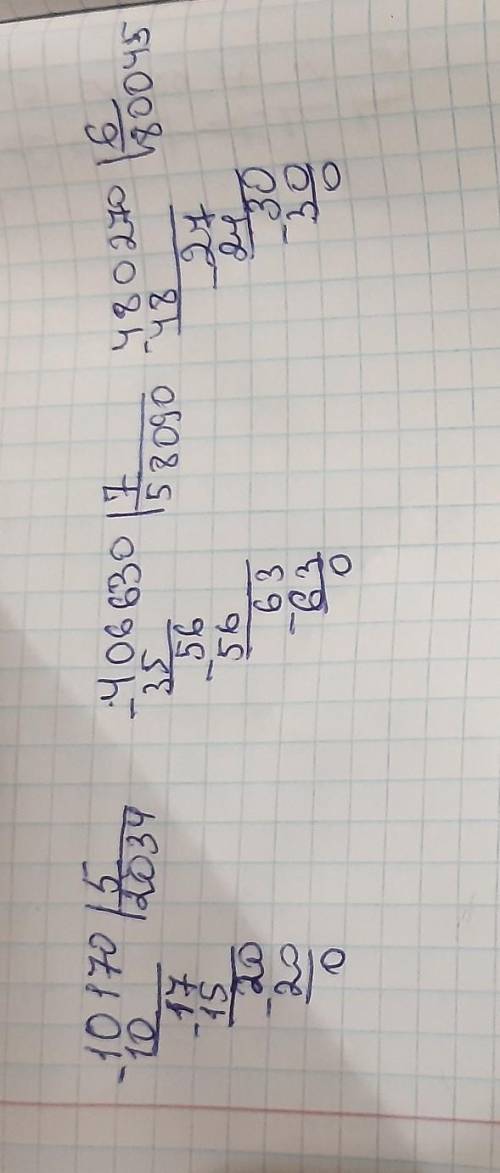 -10170 |5
10 2034
-17
15
-20
20
0
-406630 |7
35 58090
-56
56
-63
63
0
-480270 |6
48 80045
-27
24
-30
30
0